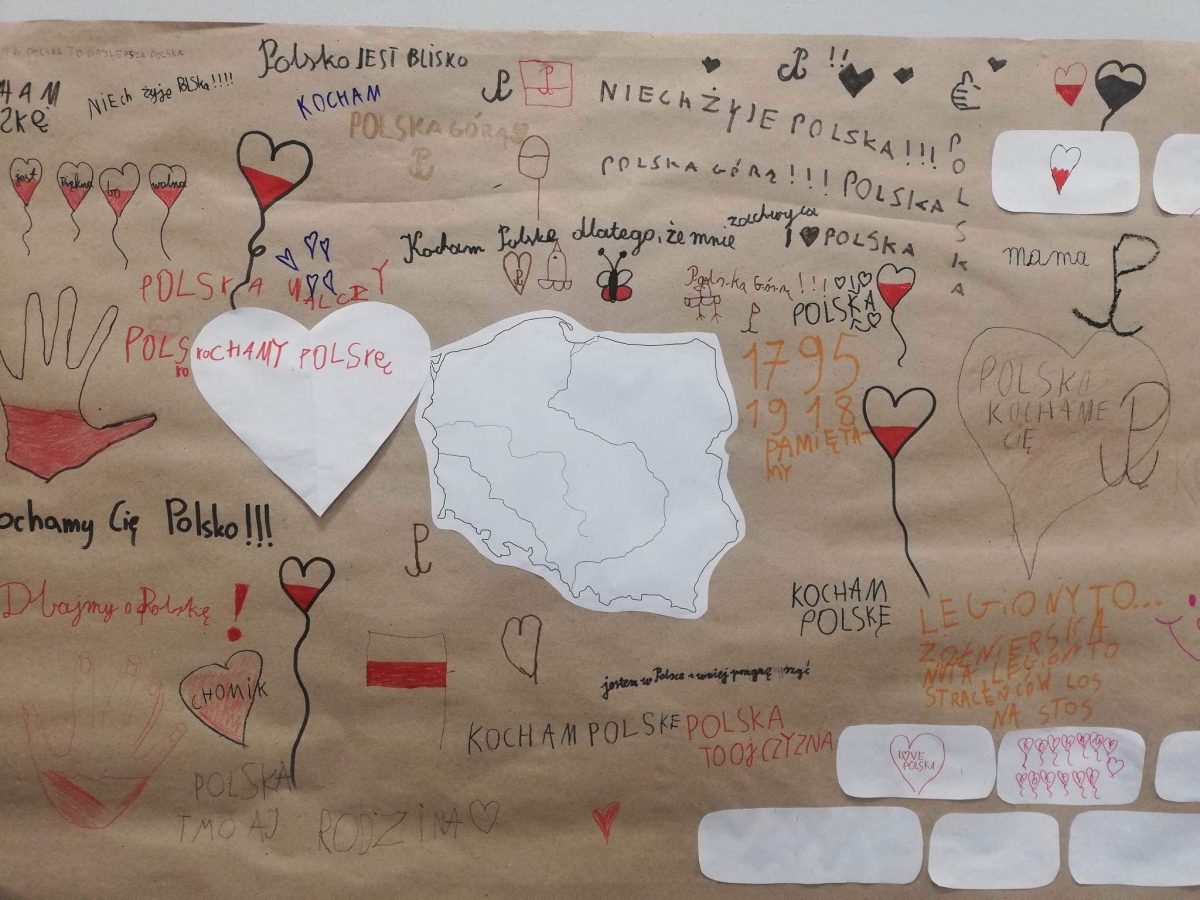 POLSKA TO NAJLEPSZA POLSKA
Polsko JEST BLISKO
NIEch żyje POLSka!!!!
HAM
SKĘ
KOCHAM
POLSKA GÓRĄ
NIECh ŻYJE POLSKA!!!
POLSKA GÓRĄ!!! POLSKA
POLSKA
jest Piękna bo wolna
Kocham Polskę dlatego, że mnie zachwyca
I POLSKA
mama
POLSKA WALCZY
Polska Górą!!!
POLSKA
POLS
KOCHAMY POLSKĘ
ko
1795
1918
PAMIĘTA-
MY
POLSKO
KOCHAME
CIĘ
ochamy Cię Polsko!!!
Dbajmy o Polskę!
KOCHAM
POLSKĘ
LEGiONY TO...
ŻOŁNIERSKA
NUTA LEGIONY TO
STRACEŃCÓW LOS
NA STOS
CHOMiK
jestem w Polsce
KOCHAM POLSKE
POLSKA
TO OJCZYZNA
LOVE
POLSKA
POLSKA
TMOAJ RODZiNA